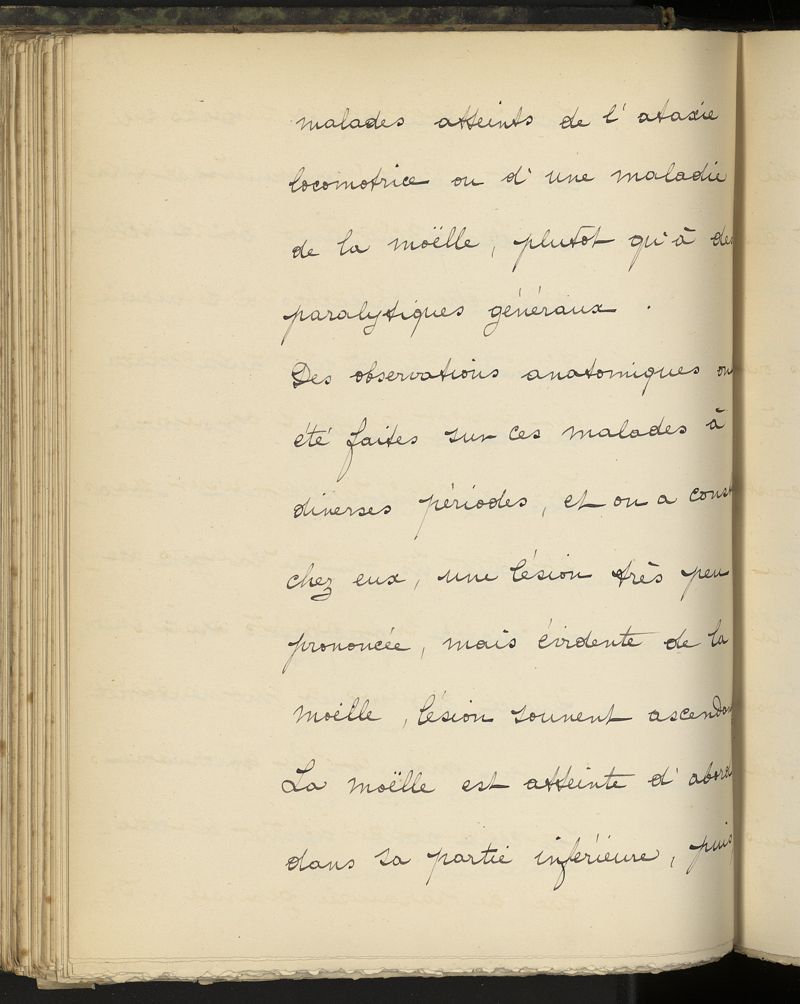 malades atteints de l'ataxie
locomotrice ou d'une maladie
de la moëlle, plutôt qu'à des
paralytiques généraux.
Des observations anatomiques on
été faites sur ces malades à
diverses périodes, et on a const
chez eux, une lésion très peu
prononcée, mais évidente de la
moëlle, lésion souvent ascendan
La moëlle est atteinte d'abord
dans sa partie inférieure, puis